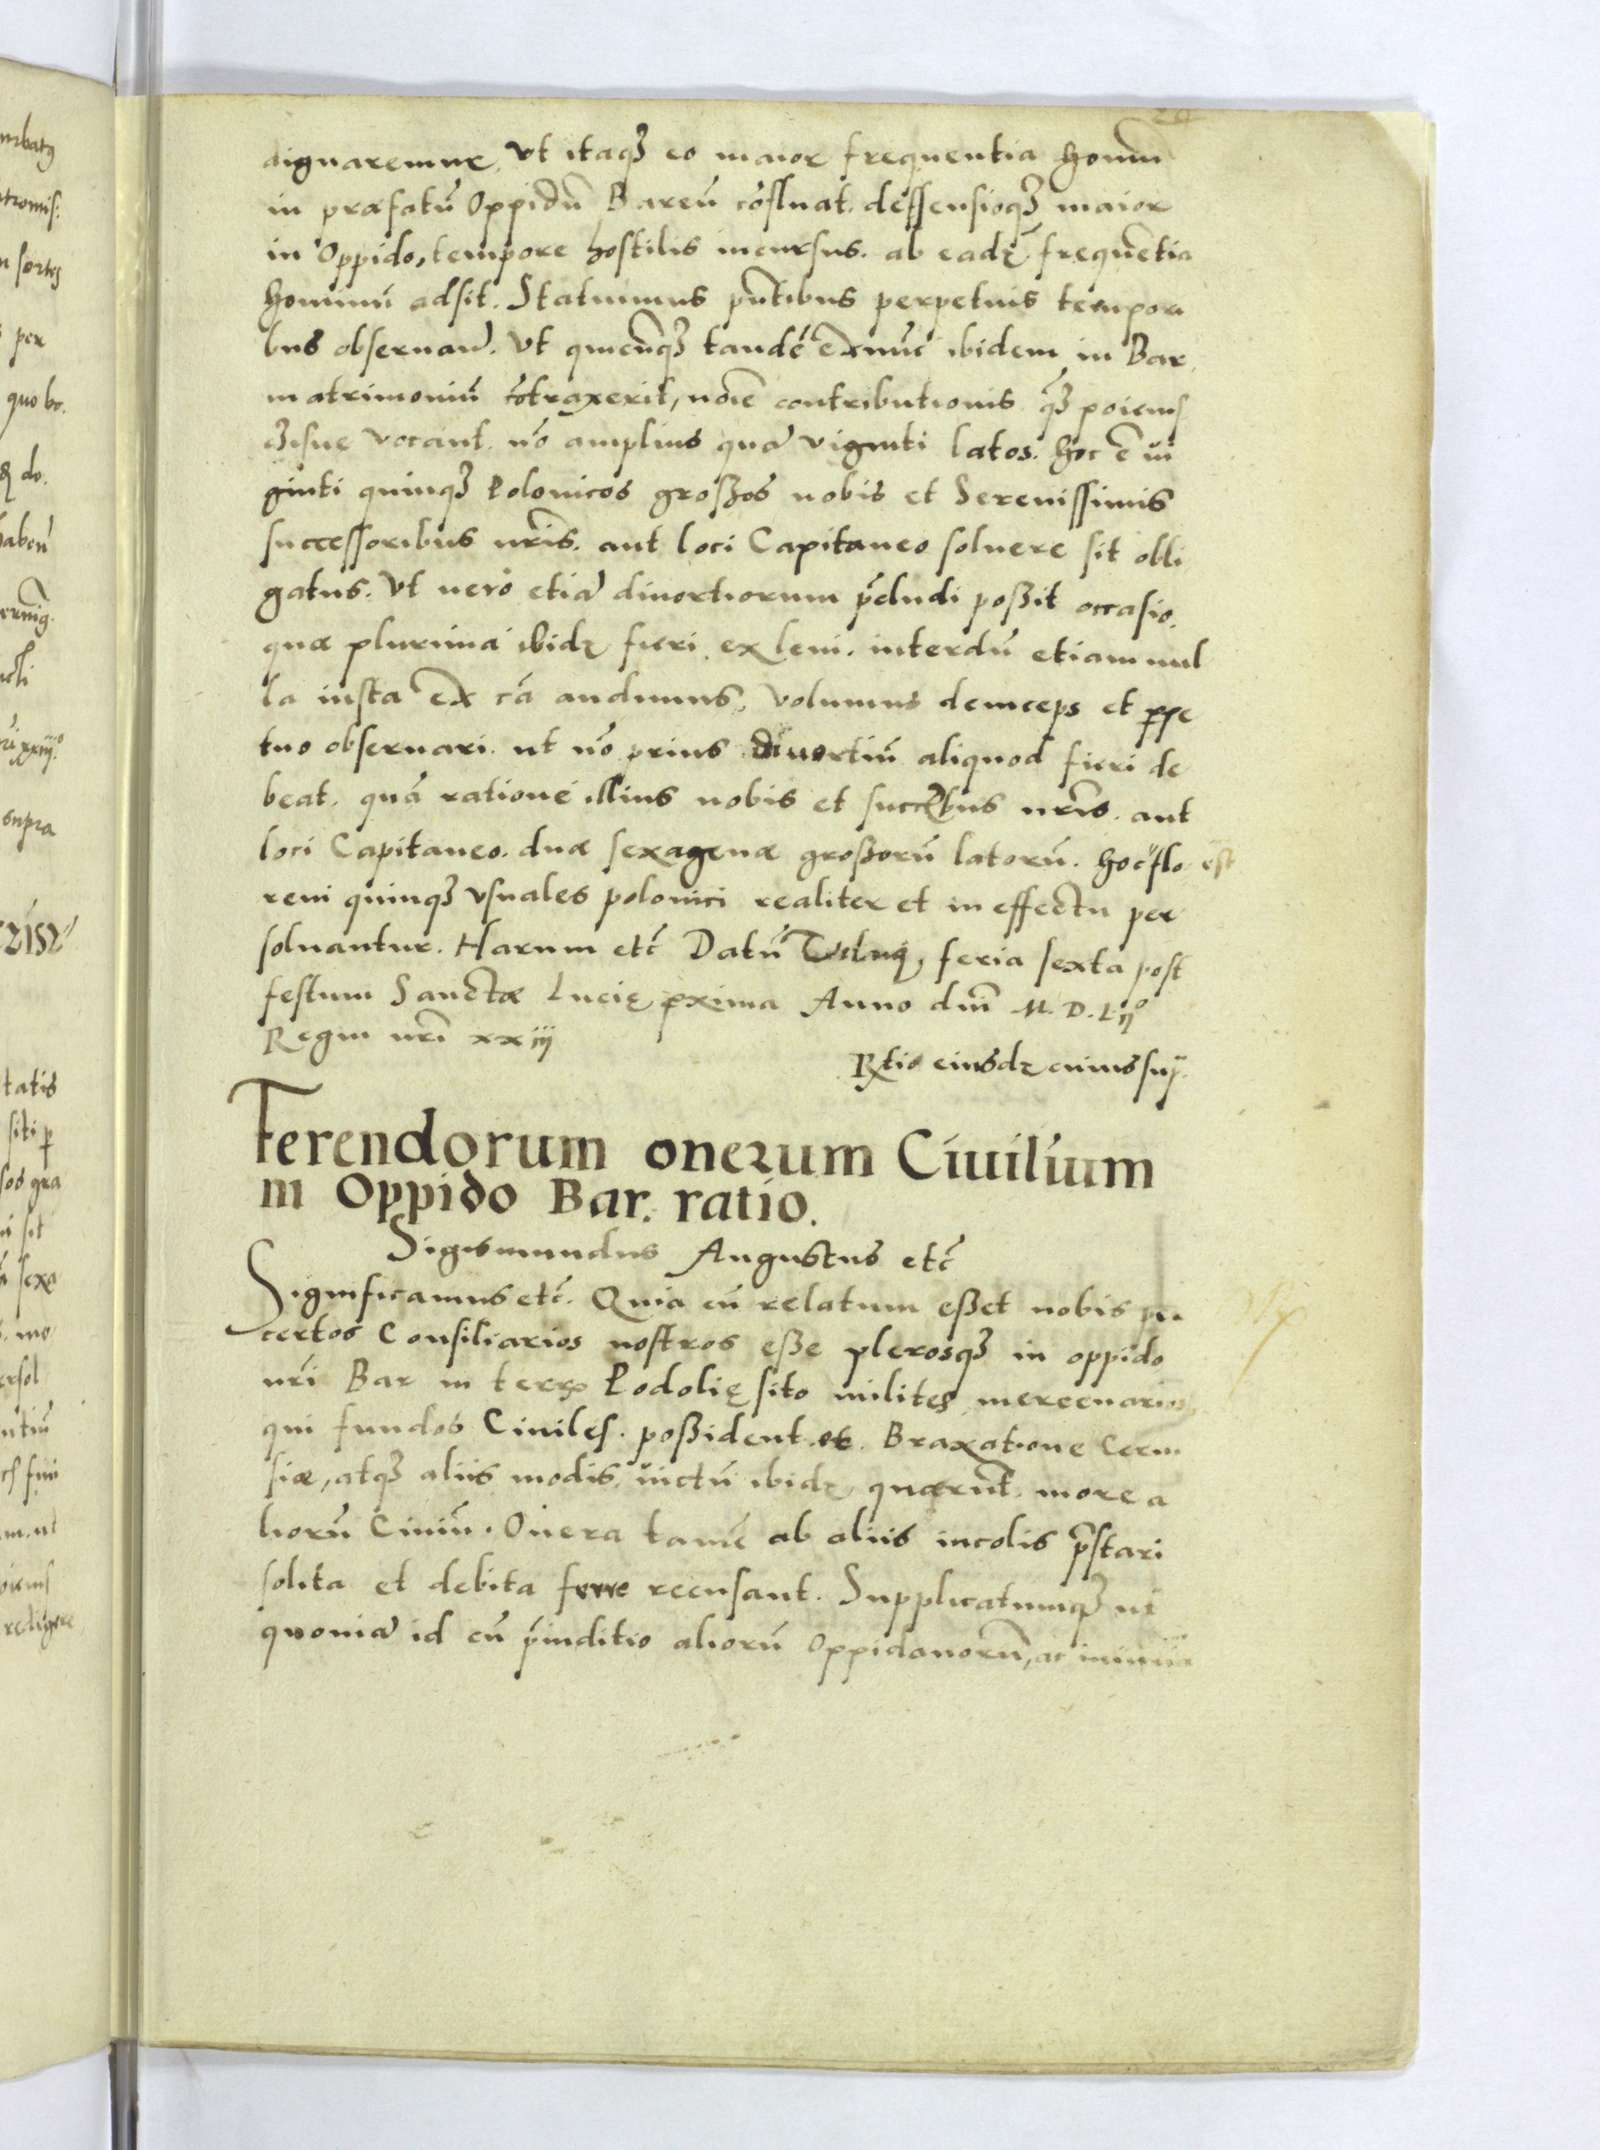 dignaremur, Vt itaqꝫ eo maior frequentia hominū
in præfatū Oppidū Barēn cōfluat. deffensioqꝫ maior
in Oppido, tempore hostilis incursus. ab eadę frequētia
hominū adsit. Statuimus pn̄tibus perpetuis tempori
bus obseruand. Vt quicūqꝫ tandē exnūc ibidem in Bar,
matrimoniū cōtraxerit, noīe contributionis
vocant. nō amplius quā viginti latos. hoc ē vi
ginti quinqꝫ Polonicos großos nobis et Serenissimis
successoribus nr̄is. aut loci Capitaneo soluere sit obli
gatus. Vt vero etiā diuortiorum p̄cludi poßit occasio.
quæ plurima ibidę fieri ex leui. interdū etiam nul
la iusta ex cā audimus, volumus deinceps et ꝑpe
tuo obseruari. ut nō prius diuortiū aliquod fieri de
beat. quā rationē illius nobis et succr̄ibus nr̄is. aut
loci Capitaneo. duæ sexagenæ großorū latorū. hoc flo est
reni quinqꝫ vsuales polonici realiter et in effectu per
soluantur. Harum etc̄ Datū Vilnę, feria sexta post
festum Sanctæ Lucię ꝓxima Anno dn̄i M. D. Lijo
Regni nr̄i xxiij
Rx̄tio eiusdę cuius suṗ.
Ferendorum onerum Ciuilium
in Oppido Bar. ratio.
Sigismundus Augustus etc̄
Significamus etc̄. Quia cū relatum eßet nobis per
certos Consiliarios nostros eße plerosqꝫ in oppido
nr̄i Bar in terra Podolię sito milites mercenarios,
qui fundos Ciuiles. poßident et. Braxatione Cerui
siæ, atqꝫ aliis modis. victū ibidę quærūt. more a
liorū Ciuiū. Onera tamē ab aliis incolis p̄stari
solita et debita ferre recusant. Supplicatumqꝫ ut
quoniā id cū p̄iuditio aliorū Oppidanorū, ac iniuria